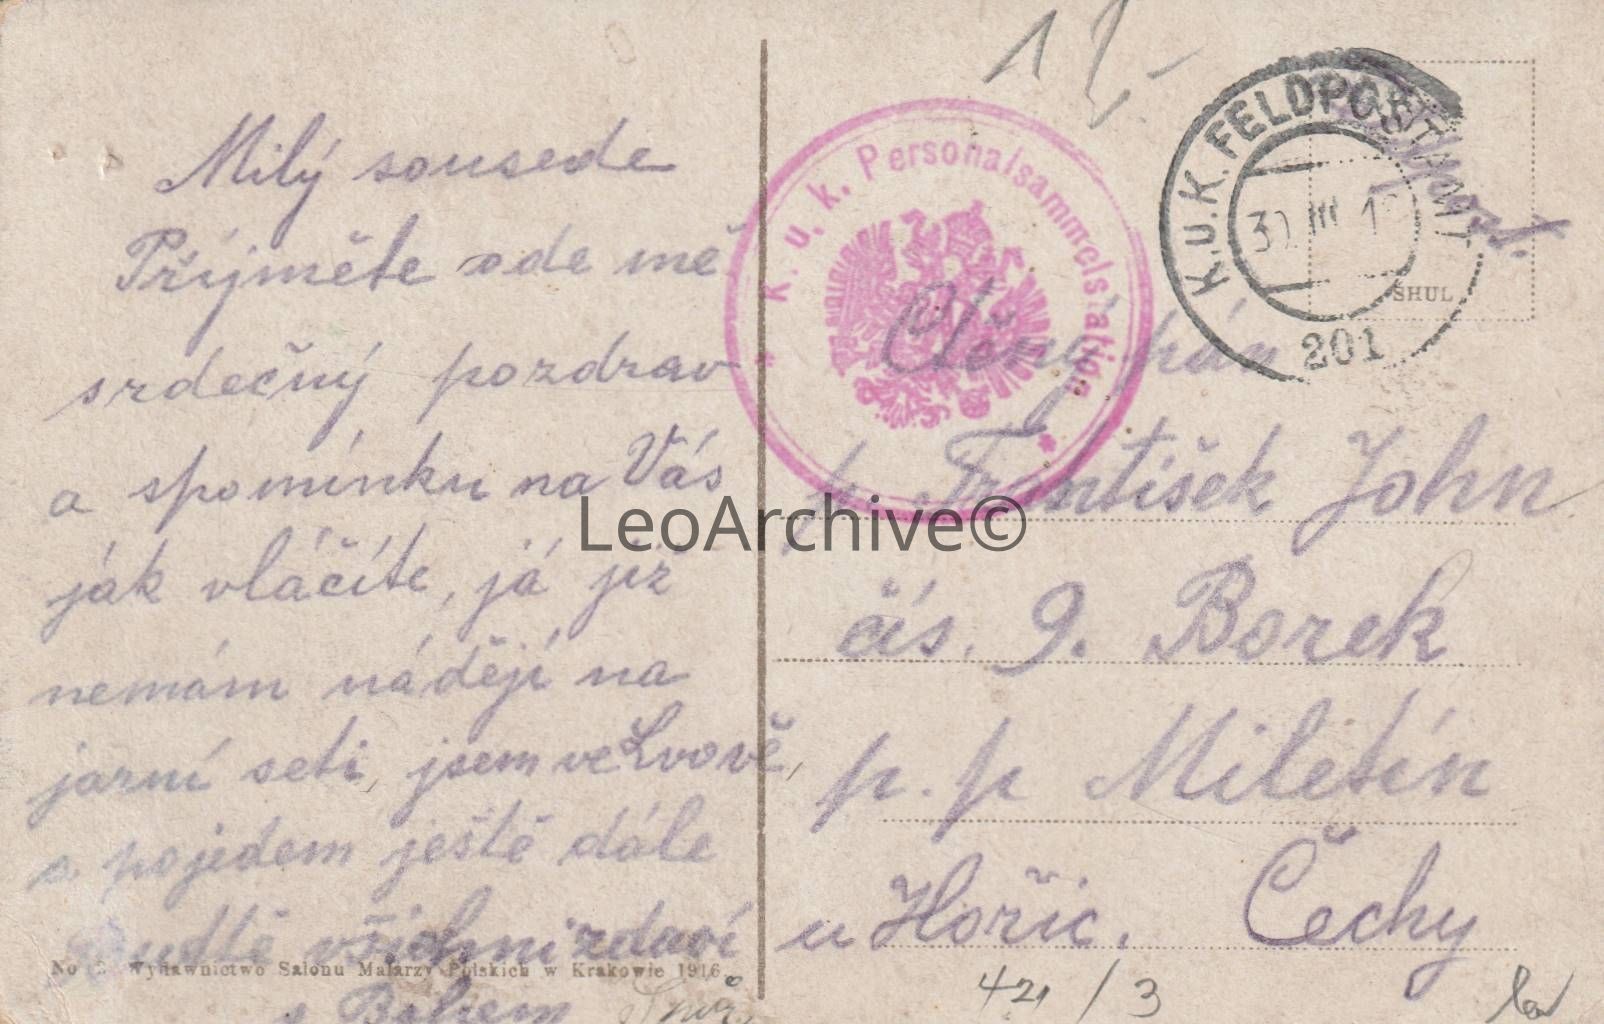 Milý sousede
Příjměte ode mě
srdečný pozdrav
a spomínku na Vás
jak vláčíte, já již
nemám nádějí na
jarní seti, jsem ve Lvově,
a pojedem ještě dále
všichni zdraví
s Bohem
No 2 Wydawnictwo Salonu Malarzy Polskich w Krakowie 1916.
k. u. k. Personalsammelstation
K.U.K. FELDPOSTAMT
201
SHUL
Ctěný pán
p. František John
čís. 9. Borek
p. p Miletín
u Hořic. Čechy
421 / 3
LeoArchive©